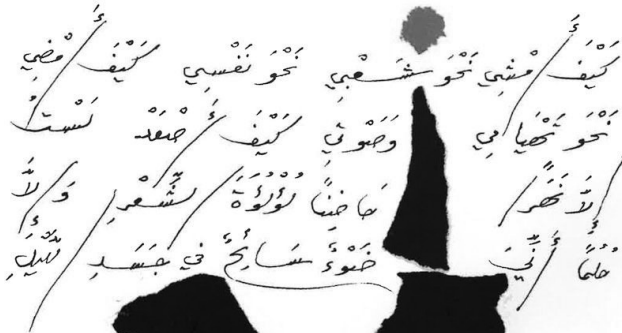 كَيْفَ أَمْشِي نَحْوَ شَعْبِي نَحْوَ نَفْسِي كَيْفَ أَمْضِي
نَحْوَ تَهْيَامِي وَصَوْتِي كَيْفَ أَصْعَدْ لَسْتُ
إِلاَّ نَهَرًا حَاضِنًا لُؤْلُؤَةَ الشِّعْرِ وَإِلاَّ
حُلُمًا أَنِّيَ ضَوْءٌ سَابِحٌ في جَسَدِ اللَّيْلِ